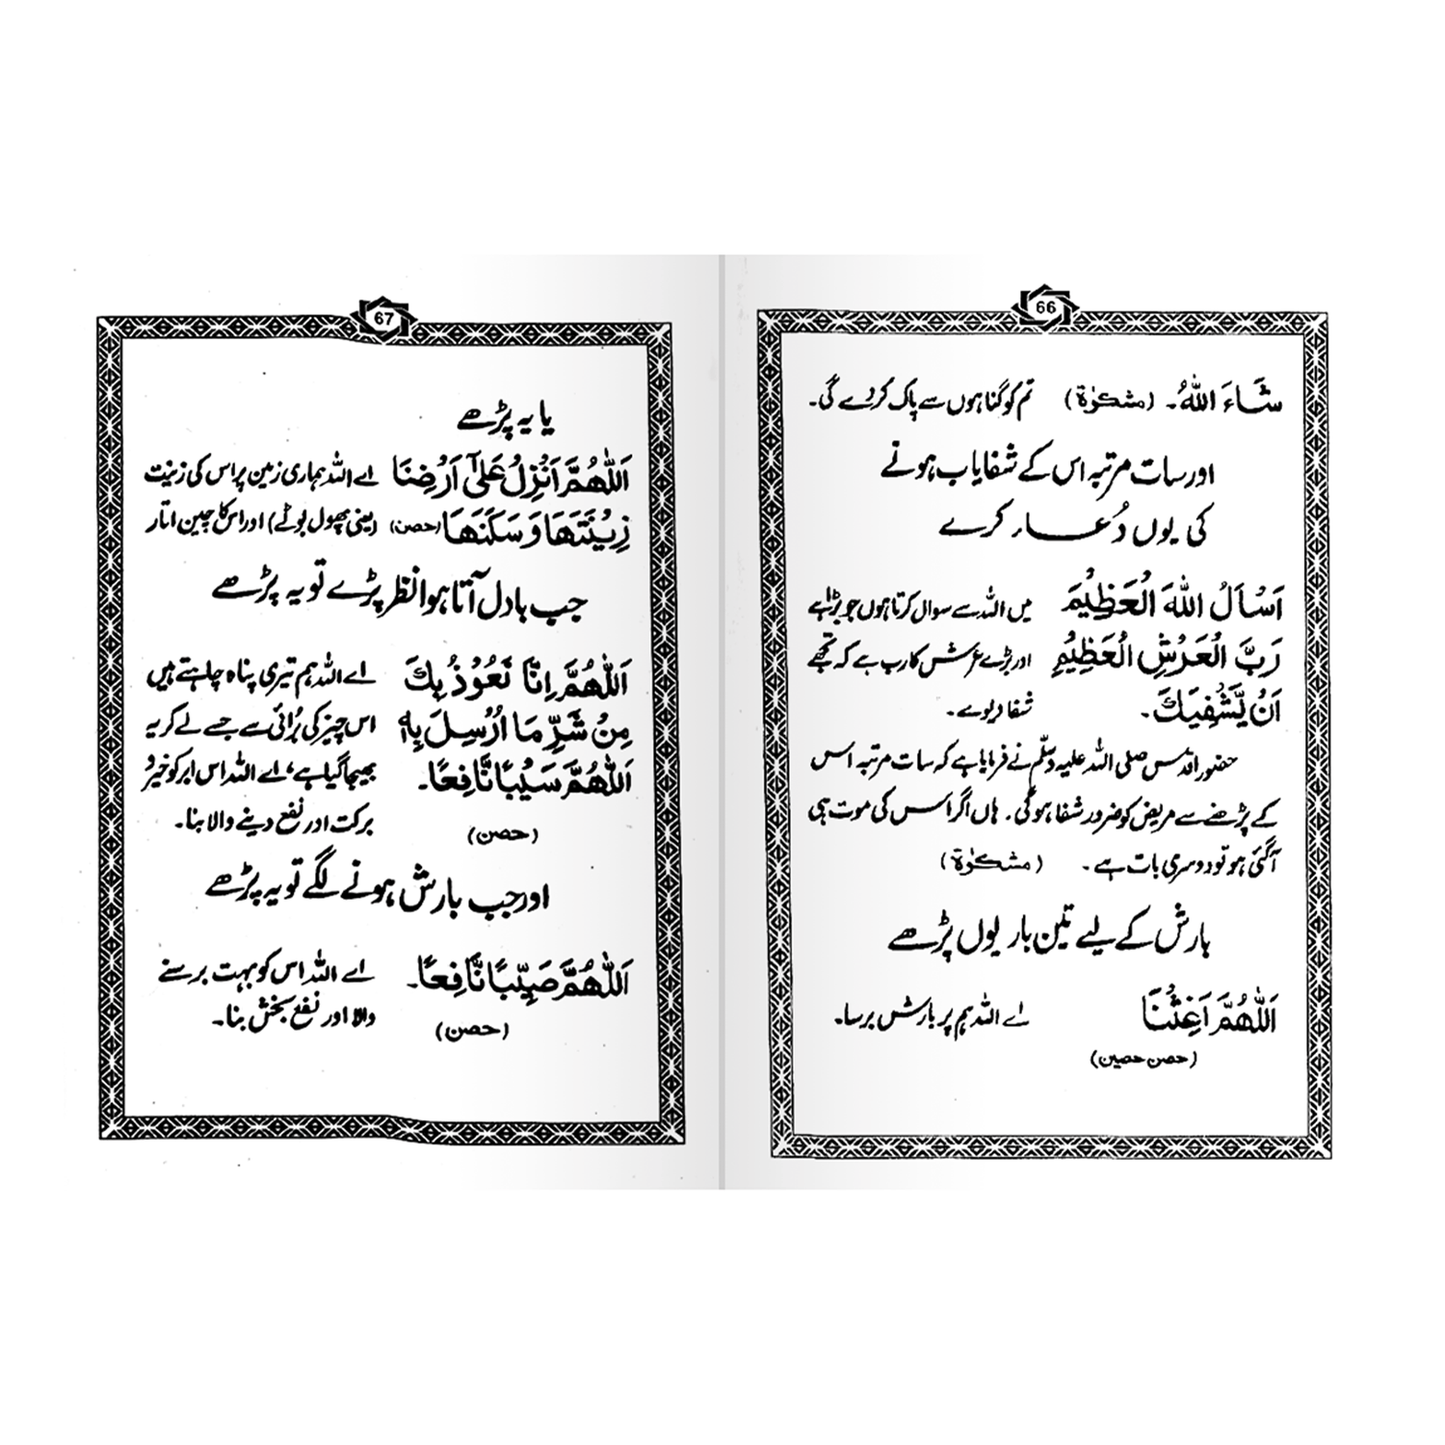 66
شَاءَ اللّٰهُ۔ (مشکوٰۃ) تم کو گناہوں سے پاک کردے گی۔
اور سات مرتبہ اس کے شفایاب ہونے
کی یوں دُعاء کرے
اَسْاَلُ اللّٰهَ الْعَظِيْمَ میں اللہ سے سوال کرتا ہوں جو بڑا ہے
رَبَّ الْعَرْشِ الْعَظِيْمِ اور بڑے عرش کا رب ہے کہ تجھے
اَنْ يَّشْفِيَكَ۔ شفا دیوے۔
حضور اقدس صلی اللہ علیہ وسلم نے فرمایا ہے کہ سات مرتبہ اس
کے پڑھنے سے مریض کو ضرور شفا ہوگی۔ ہاں اگر اس کی موت ہی
آگئی ہو تو دوسری بات ہے۔ (مشکوٰۃ)
بارش کے لیے تین بار یوں پڑھے
اَللّٰهُمَّ اَغِثْنَا اے اللہ ہم پر بارش برسا۔
(حصن حصین)
67
یا یہ پڑھے
اَللّٰهُمَّ اَنْزِلْ عَلٰٓى اَرْضِنَا اے اللہ ہماری زمین پر اس کی زینت
زِيْنَتَهَا وَ سَكَنَهَا (حصن) (یعنی پھول بوٹے) اور اس کا چین اتار
جب بادل آتا ہوا نظر پڑے تو یہ پڑھے
اَللّٰهُمَّ اِنَّا نَعُوْذُ بِكَ اے اللہ ہم تیری پناہ چاہتے ہیں
مِنْ شَرِّ مَا اُرْسِلَ بِهٖ اس چیز کی بُرائی سے جسے لے کر یہ
اَللّٰهُمَّ سَيْبًا نَّافِعًا۔ بھیجا گیا ہے، اے اللہ اس ابر کو خیر و
(حصن) برکت اور نفع دینے والا بنا۔
اور جب بارش ہونے لگے تو یہ پڑھے
اَللّٰهُمَّ صَيِّبًا نَّافِعًا۔ اے اللہ اس کو بہت برسنے
(حصن) والا اور نفع بخش بنا۔